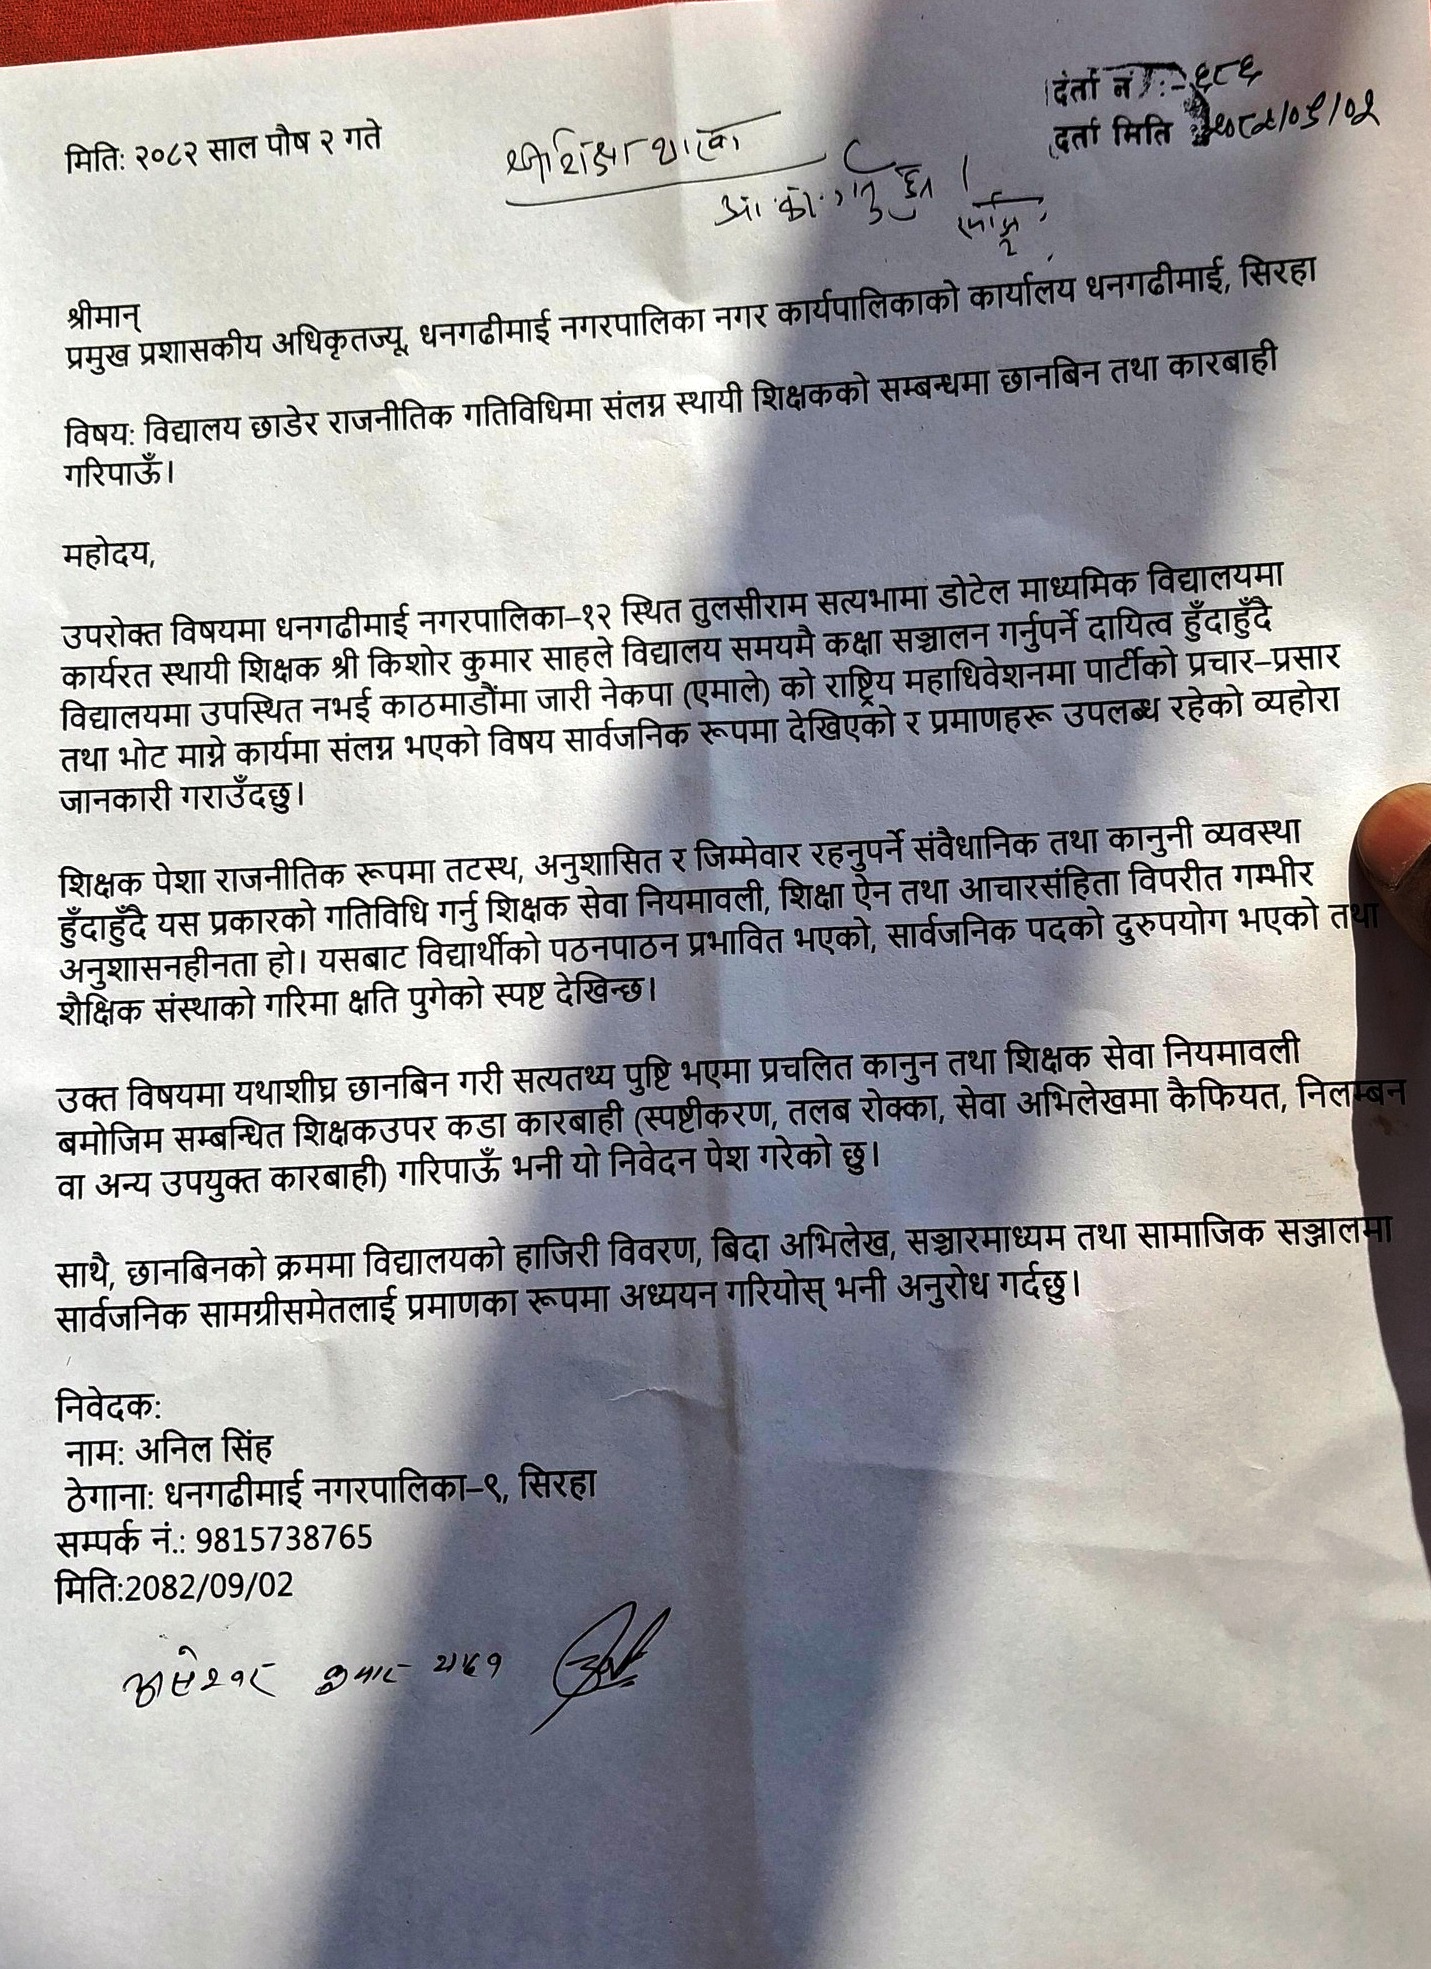 दर्ता नं :- ६८६
मिति: २०८२ साल पौष २ गते
दर्ता मिति २०८२/०९/०२
श्री शिक्षा शाखा
श्रीमान्
प्रमुख प्रशासकीय अधिकृतज्यू, धनगढीमाई नगरपालिका नगर कार्यपालिकाको कार्यालय धनगढीमाई, सिरहा
विषय: विद्यालय छाडेर राजनीतिक गतिविधिमा संलग्न स्थायी शिक्षकको सम्बन्धमा छानबिन तथा कारबाही
गरिपाऊँ।
महोदय,
उपरोक्त विषयमा धनगढीमाई नगरपालिका–१२ स्थित तुलसीराम सत्यभामा डोटेल माध्यमिक विद्यालयमा
कार्यरत स्थायी शिक्षक श्री किशोर कुमार साहले विद्यालय समयमै कक्षा सञ्चालन गर्नुपर्ने दायित्व हुँदाहुँदै
विद्यालयमा उपस्थित नभई काठमाडौंमा जारी नेकपा (एमाले) को राष्ट्रिय महाधिवेशनमा पार्टीको प्रचार–प्रसार
तथा भोट माग्ने कार्यमा संलग्न भएको विषय सार्वजनिक रूपमा देखिएको र प्रमाणहरू उपलब्ध रहेको व्यहोरा
जानकारी गराउँदछु।
शिक्षक पेशा राजनीतिक रूपमा तटस्थ, अनुशासित र जिम्मेवार रहनुपर्ने संवैधानिक तथा कानुनी व्यवस्था
हुँदाहुँदै यस प्रकारको गतिविधि गर्नु शिक्षक सेवा नियमावली, शिक्षा ऐन तथा आचारसंहिता विपरीत गम्भीर
अनुशासनहीनता हो। यसबाट विद्यार्थीको पठनपाठन प्रभावित भएको, सार्वजनिक पदको दुरुपयोग भएको तथा
शैक्षिक संस्थाको गरिमा क्षति पुगेको स्पष्ट देखिन्छ।
उक्त विषयमा यथाशीघ्र छानबिन गरी सत्यतथ्य पुष्टि भएमा प्रचलित कानुन तथा शिक्षक सेवा नियमावली
बमोजिम सम्बन्धित शिक्षकउपर कडा कारबाही (स्पष्टीकरण, तलब रोक्का, सेवा अभिलेखमा कैफियत, निलम्बन
वा अन्य उपयुक्त कारबाही) गरिपाऊँ भनी यो निवेदन पेश गरेको छु।
साथै, छानबिनको क्रममा विद्यालयको हाजिरी विवरण, बिदा अभिलेख, सञ्चारमाध्यम तथा सामाजिक सञ्जालमा
सार्वजनिक सामग्रीसमेतलाई प्रमाणका रूपमा अध्ययन गरियोस् भनी अनुरोध गर्दछु।
निवेदक:
नाम: अनिल सिंह
ठेगाना: धनगढीमाई नगरपालिका–९, सिरहा
सम्पर्क नं.: 9815738765
मिति:2082/09/02
कुमार यादव